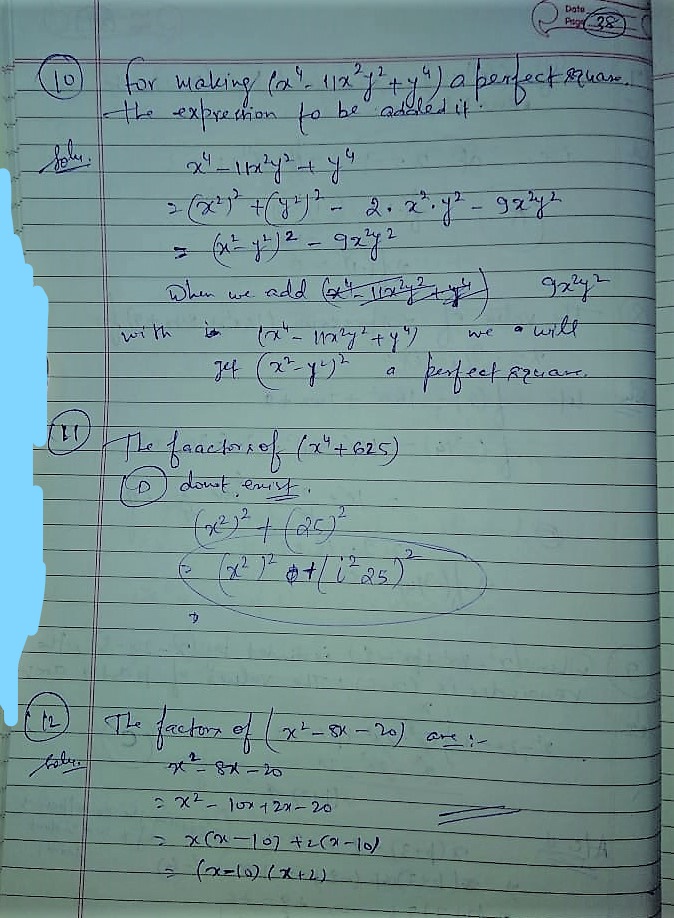 Date
Page 38
10 for making (x⁴ - 11x²y² + y⁴) a perfect square.
the expression to be added it
Solu.
x⁴ - 11x²y² + y⁴
= (x²)² + (y²)² - 2. x².y² - 9x²y²
= (x² - y²)² - 9x²y²
When we add 9x²y²
with (x⁴ - 11x²y² + y⁴) we will
get (x² - y²)² a perfect square.
11 The faactors of (x⁴ + 625)
D donot exist.
(x²)² + (25)²
= (x²)² + (i² 25)²
12 The factors of (x² - 8x - 20) are :-
Solu.
x² - 8x - 20
= x² - 10x + 2x - 20
= x(x - 10) + 2(x - 10)
= (x - 10) (x + 2)